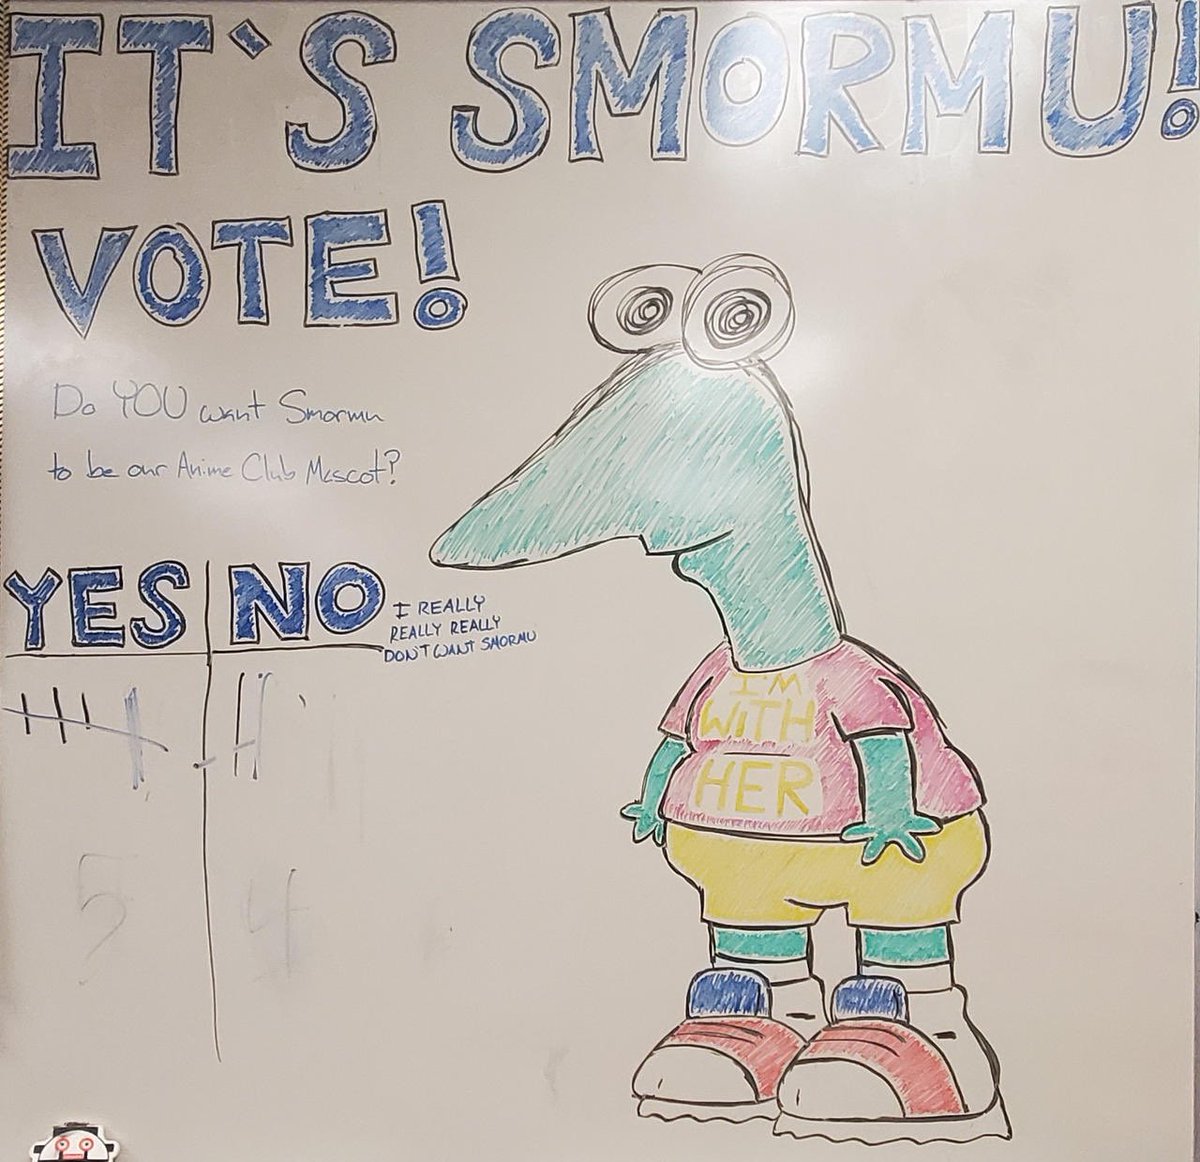 IT`S SMORMU!
VOTE!
Do YOU want Smormu
to be our Anime Club Mascot?
YES NO
I REALLY
REALLY REALLY
DON'T WANT SMORMU
5 4
I'M
WITH
HER